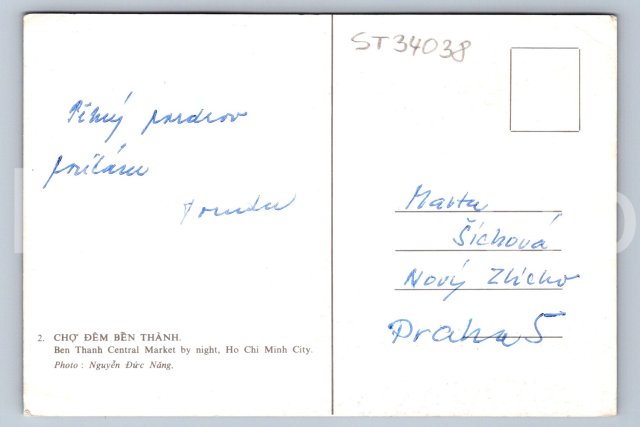 ST34038
Pěkný pozdrav
posílám
Marta
Šíchová
Nový Zlíchov
Praha 5
2. CHỢ ĐÊM BẾN THÀNH.
Ben Thanh Central Market by night, Ho Chi Minh City.
Photo : Nguyễn Đức Năng.